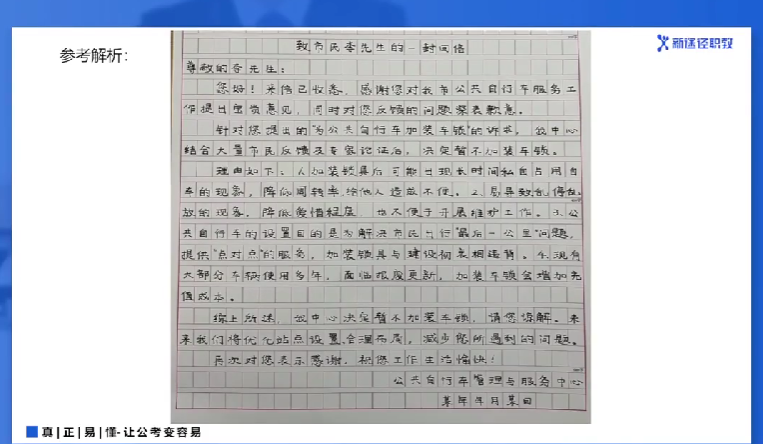 参考解析:
新途径职教
致市民李先生的一封回信
尊敬的李先生:
您好!来信已收悉,感谢您对我市公共自行车服务工
作提出宝贵意见,同时对您反馈的问题深表歉意。
针对您提出的"为公共自行车加装车锁"的诉求,我中心
结合大量市民反馈及专家论证后,决定暂不加装车锁。
理由如下:1.加装锁具后可能出现长时间私自占用自
车的现象,降低周转率,给他人造成不便。2.易导致乱停乱
放的现象,降低 ,也不便于开展维护工作。3.公
共自行车的设置目的是为解决市民出行"最后一公里"问题,
提供"点对点"的服务,加装锁具与建设初衷相违背。4.现有
大部分车辆使用多年,面临报废更新,加装车锁会增加无
值成本。
综上所述,我中心决定暂不加装车锁,请您谅解。未
来我们将优化站点设置,合理布局,减少您所遇到的问题。
再次对您表示感谢,祝您工作生活愉快!
公共自行车管理与服务中心
某年某月某日
真|正|易|懂-让公考变容易